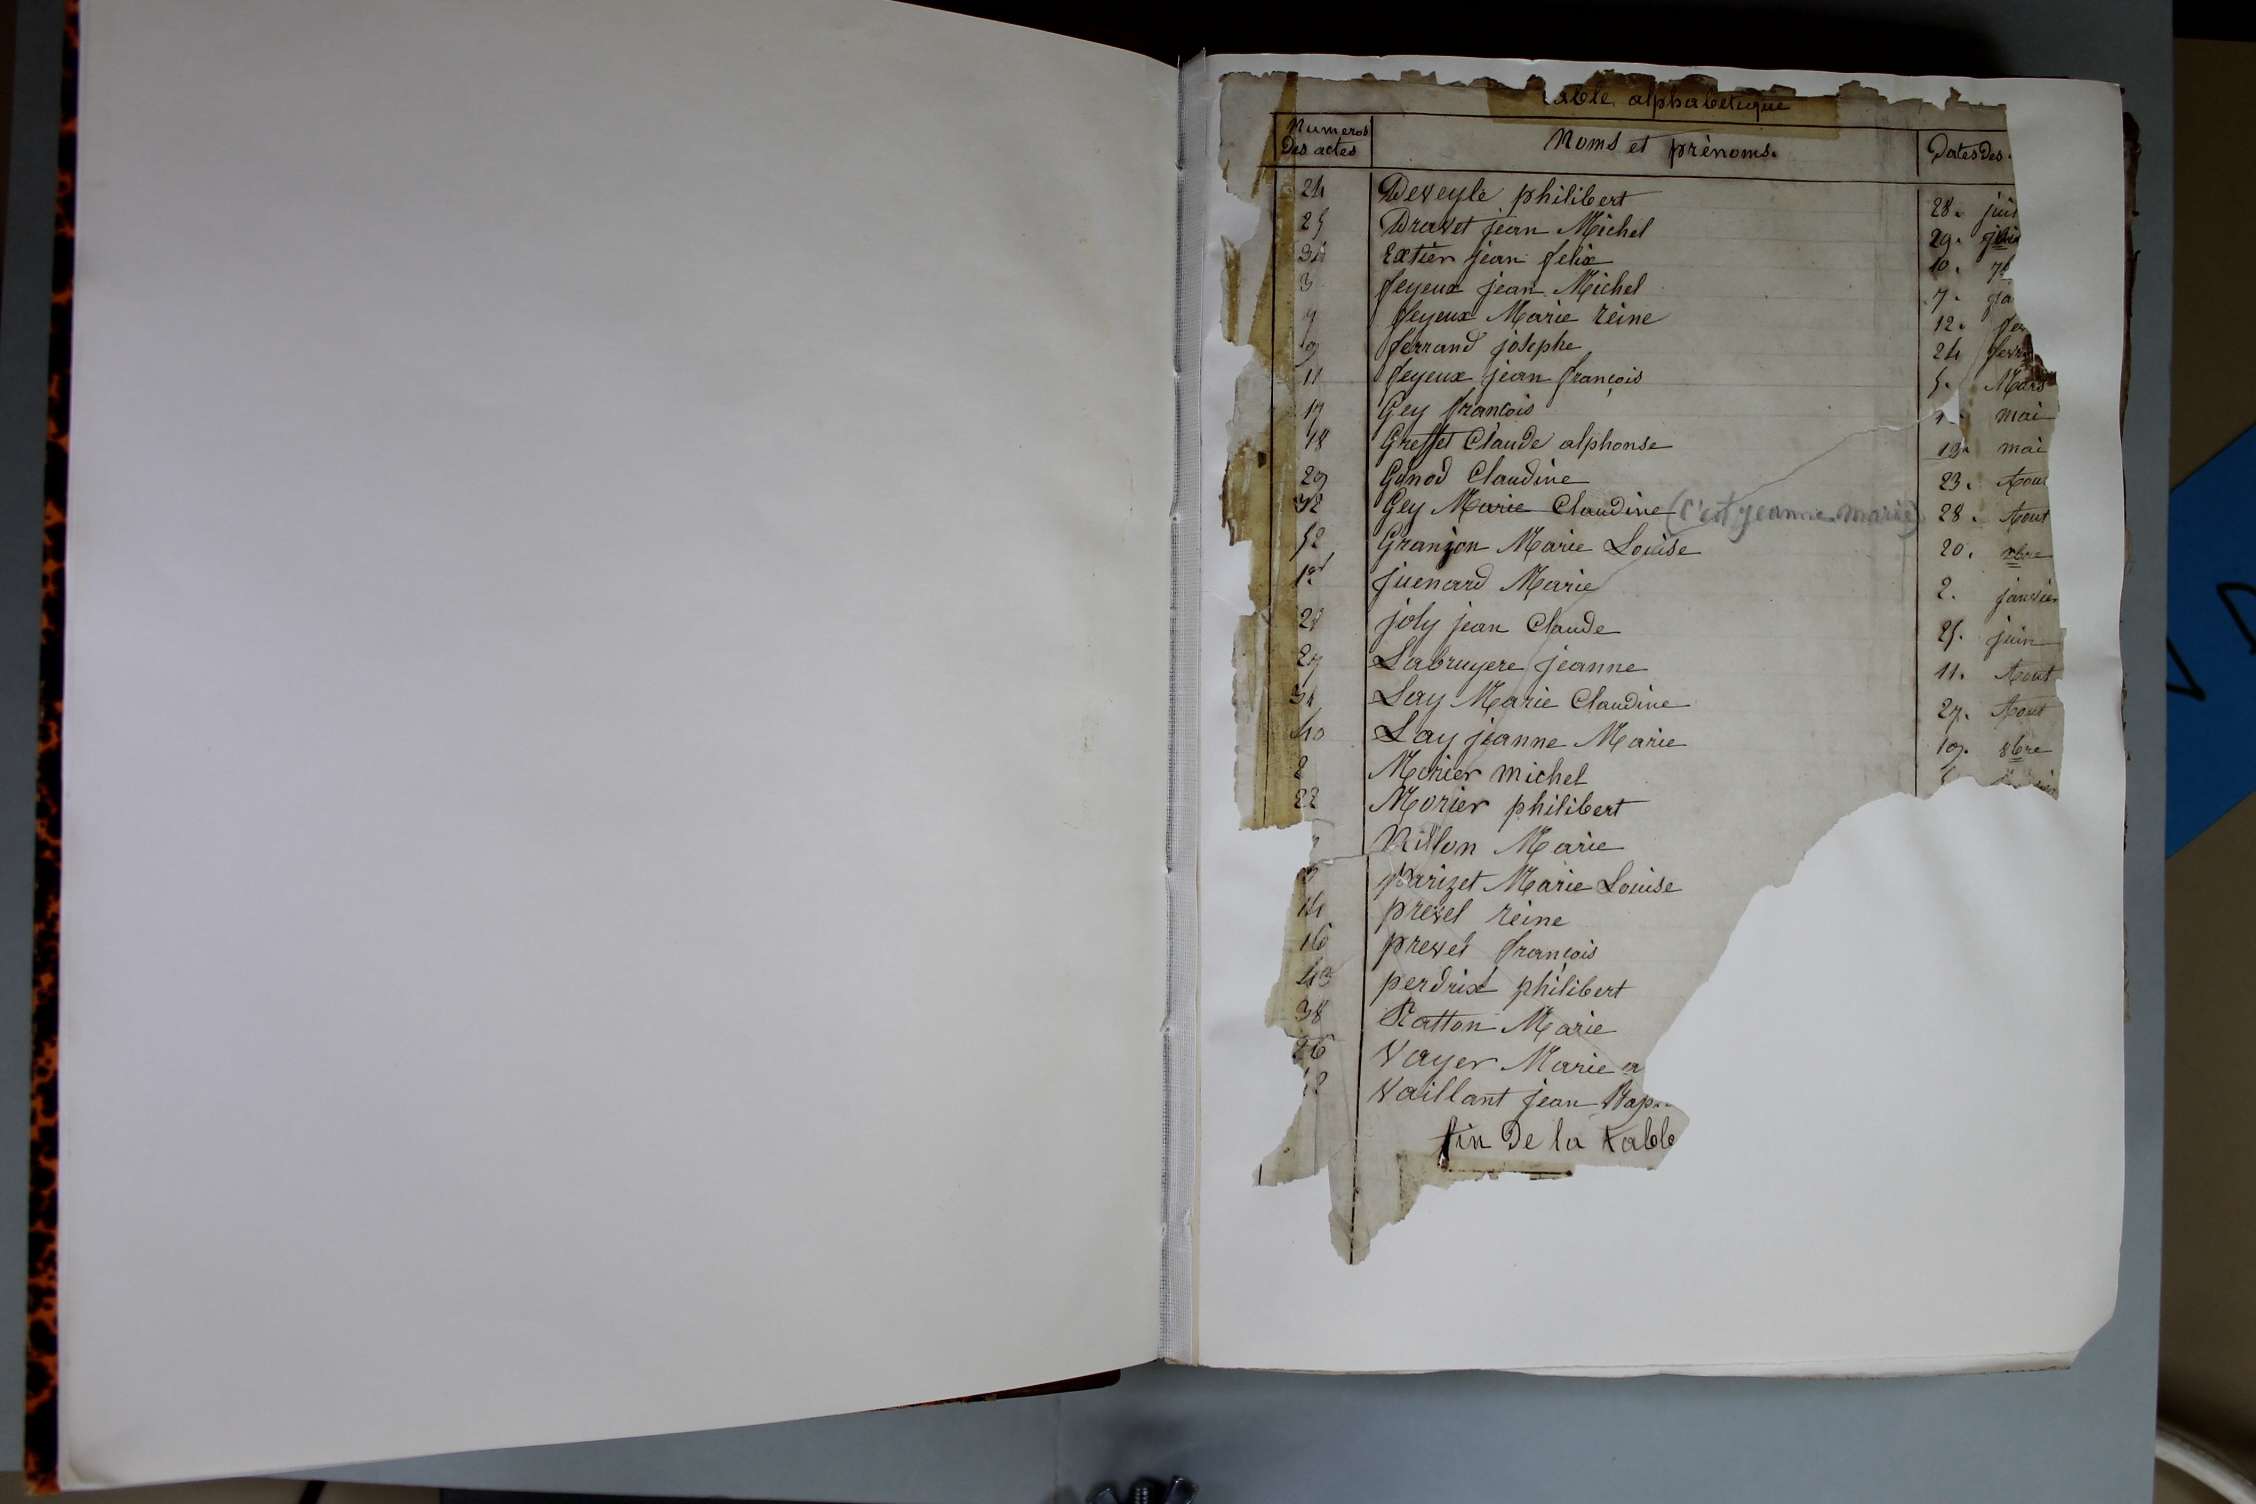 table alphabetique
Numeros Des actes Noms et prènoms. Dates Des
24 Deveyle philibert 28. jui
25 Dravet jean Michel 29. juin
34 Extier jean felix 10. 7b
3 feyeux jean Michel 7. ja
feyeux Marie reine 12. fev
9 ferrand josephe 24 fevr
11 feyeux jean françois 5. Mars
17 Gey francois mai
18 Greffet Claude alphonse 19. mai
29 Gonod Claudine 23. Aout
32 Gey Marie Claudine (C'est jeanne marie) 28. Aout
52 Granjon Marie Louise 20. xbre
1er juenard Marie 2. janvier
joly jean Claude 25. juin
27 Labruyere jeanne 11. Aout
31 Lay Marie Claudine 27. Aout
40 Lay jeanne Marie 19. 8bre
2 Morier michel
22 Morier philibert
Nillon Marie
parizet Marie Louise
14 prevel reine
16 prevel françois
43 perdrix philibert
38 Ratton Marie
26 Vayer Marie
Vaillant jean Bap
fin de la table